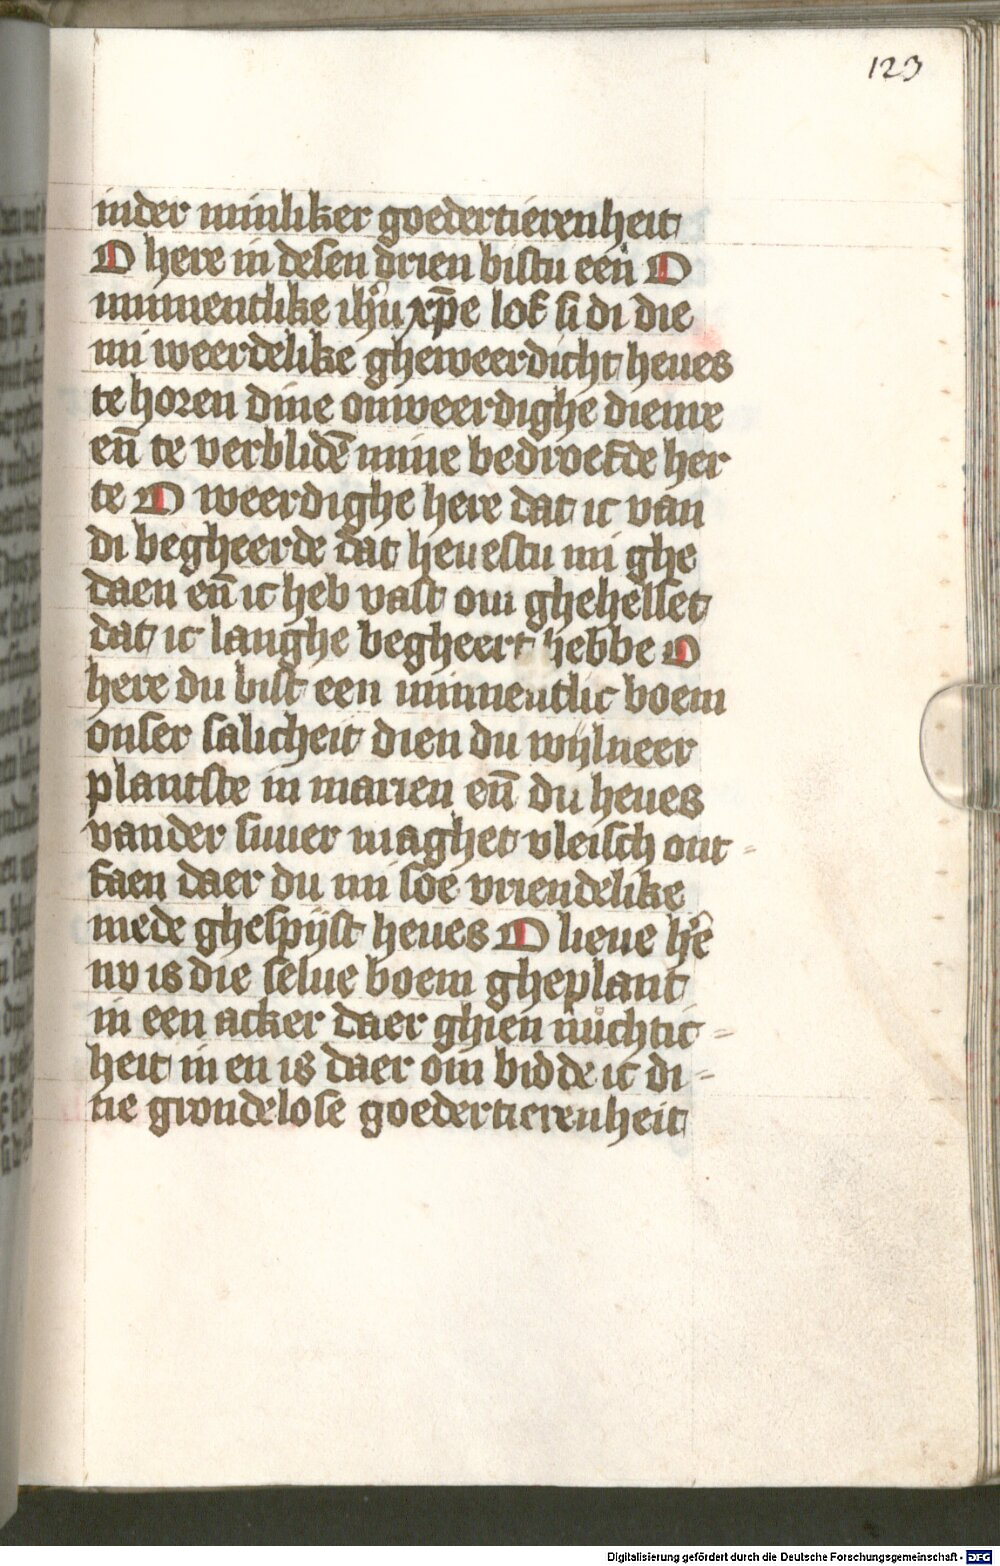 123
inder minliker goedertierenheit
O here in desen drien bistu een O
minnentlike ihu xpe lof si di die
mi weerdelike gheweerdicht heues
te horen dine onweerdighe dienre
en̄ te verblidē mine bedroefde her
te O weerdighe here dat ic van
di begheerde dat heuestu mi ghe
daen en̄ ic heb vast om ghehelset
dat ic langhe begheert hebbe O
here du bist een minnentlic boem
onser salicheit dien du wijlneer
plantste in marien en̄ du heues
vander suuer maghet vleisch ont-
faen daer du mi soe vriendelike
mede ghespijst heues O lieue he
nv is die selue boem gheplant
in een acker daer ghien vuchtic-
heit in en is daer om bidde ic di-
ne grondelose goedertierenheit
Digitalisierung gefördert durch die Deutsche Forschungsgemeinschaft - DFG